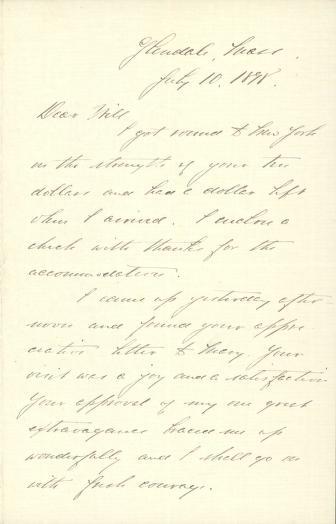 Glendale, Mass.
July 10. 1898.
Dear Will
I got round to New York
on the strength of your ten
dollars and had a dollar left
when I arrived. I enclose a
check with thanks for the
accommodation.
I came up yesterday after-
noon and found your appre-
ciative letter to Mary. Your
visit was a joy and a satisfaction
Your approval of my one great
extravagance braced me up
wonderfully and I shall go on
with fresh courage.